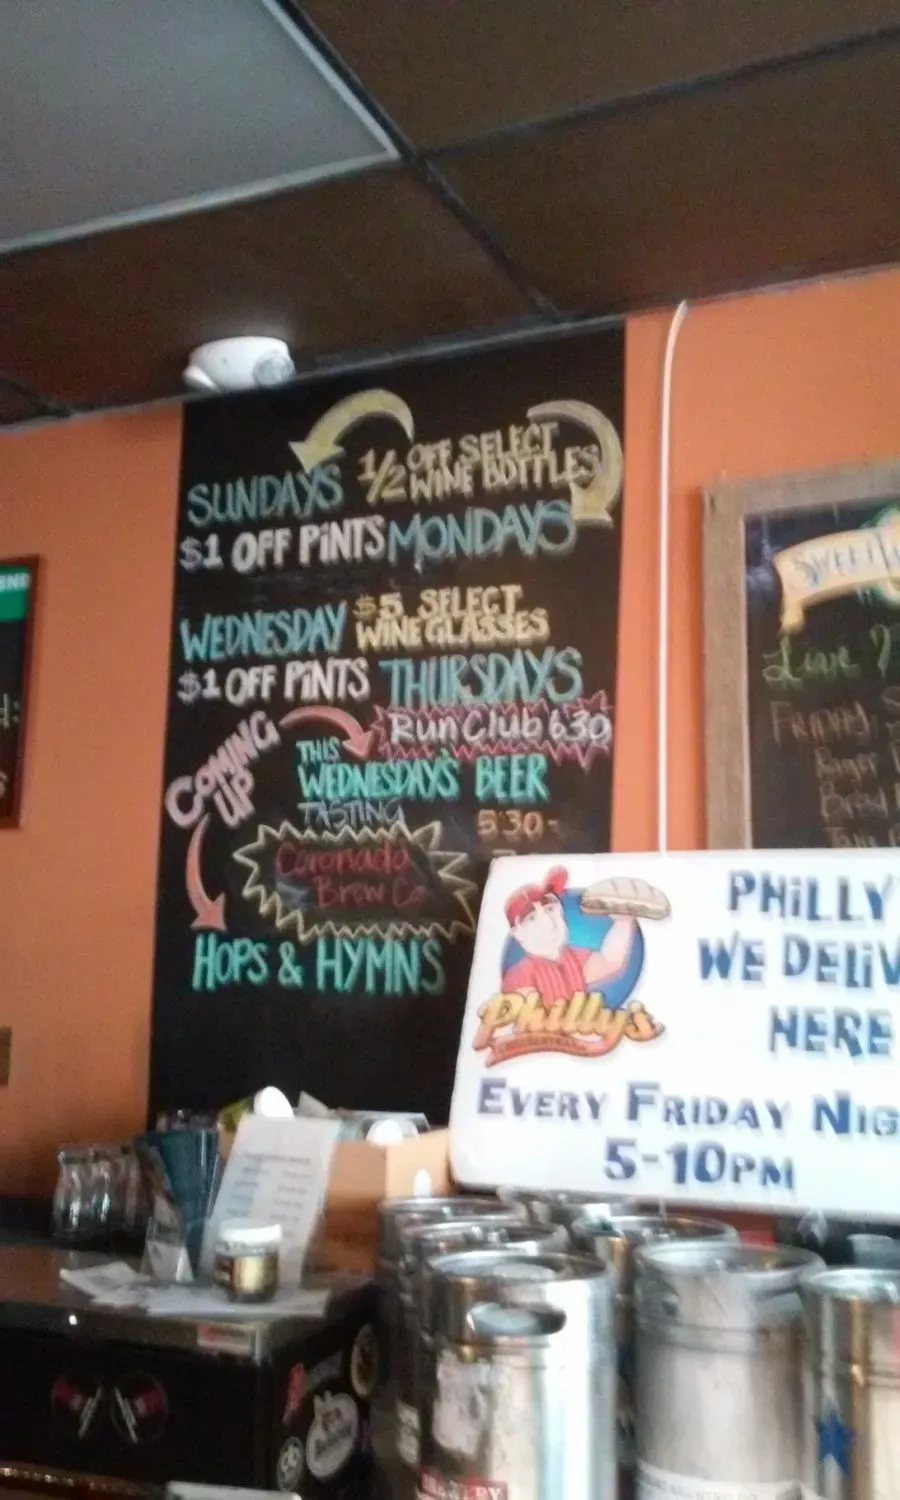 1/2 OFF SELECT
WINE BOTTLES
SUNDAYS
$1 OFF PiNTS MONDAYS
WEDNESDAY $5 SELECT
WINE GLASSES
$1 OFF PiNTS THURSDAYS
Run Club 630
COMING
UP
THIS
WEDNESDAY'S BEER
TASTING
5:30-
Coronado
Brew Co
HOPS & HYMNS
Live
FRIDAY
Philly's
PHiLLY'
WE DELiV
HERE
EVERY FRIDAY NIG
5-10PM